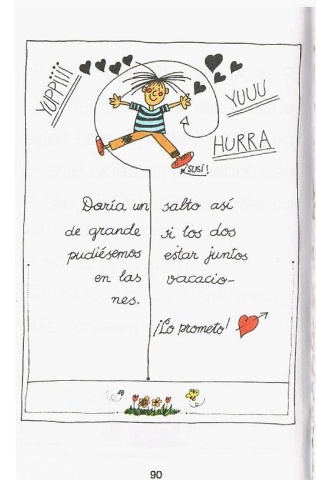 YUPPIIII
YUUU
HURRA
SUSI!
Daría un salto así
de grande si los dos
pudiésemos estar juntos
en las vacacio-
nes.
¡Lo prometo!
90